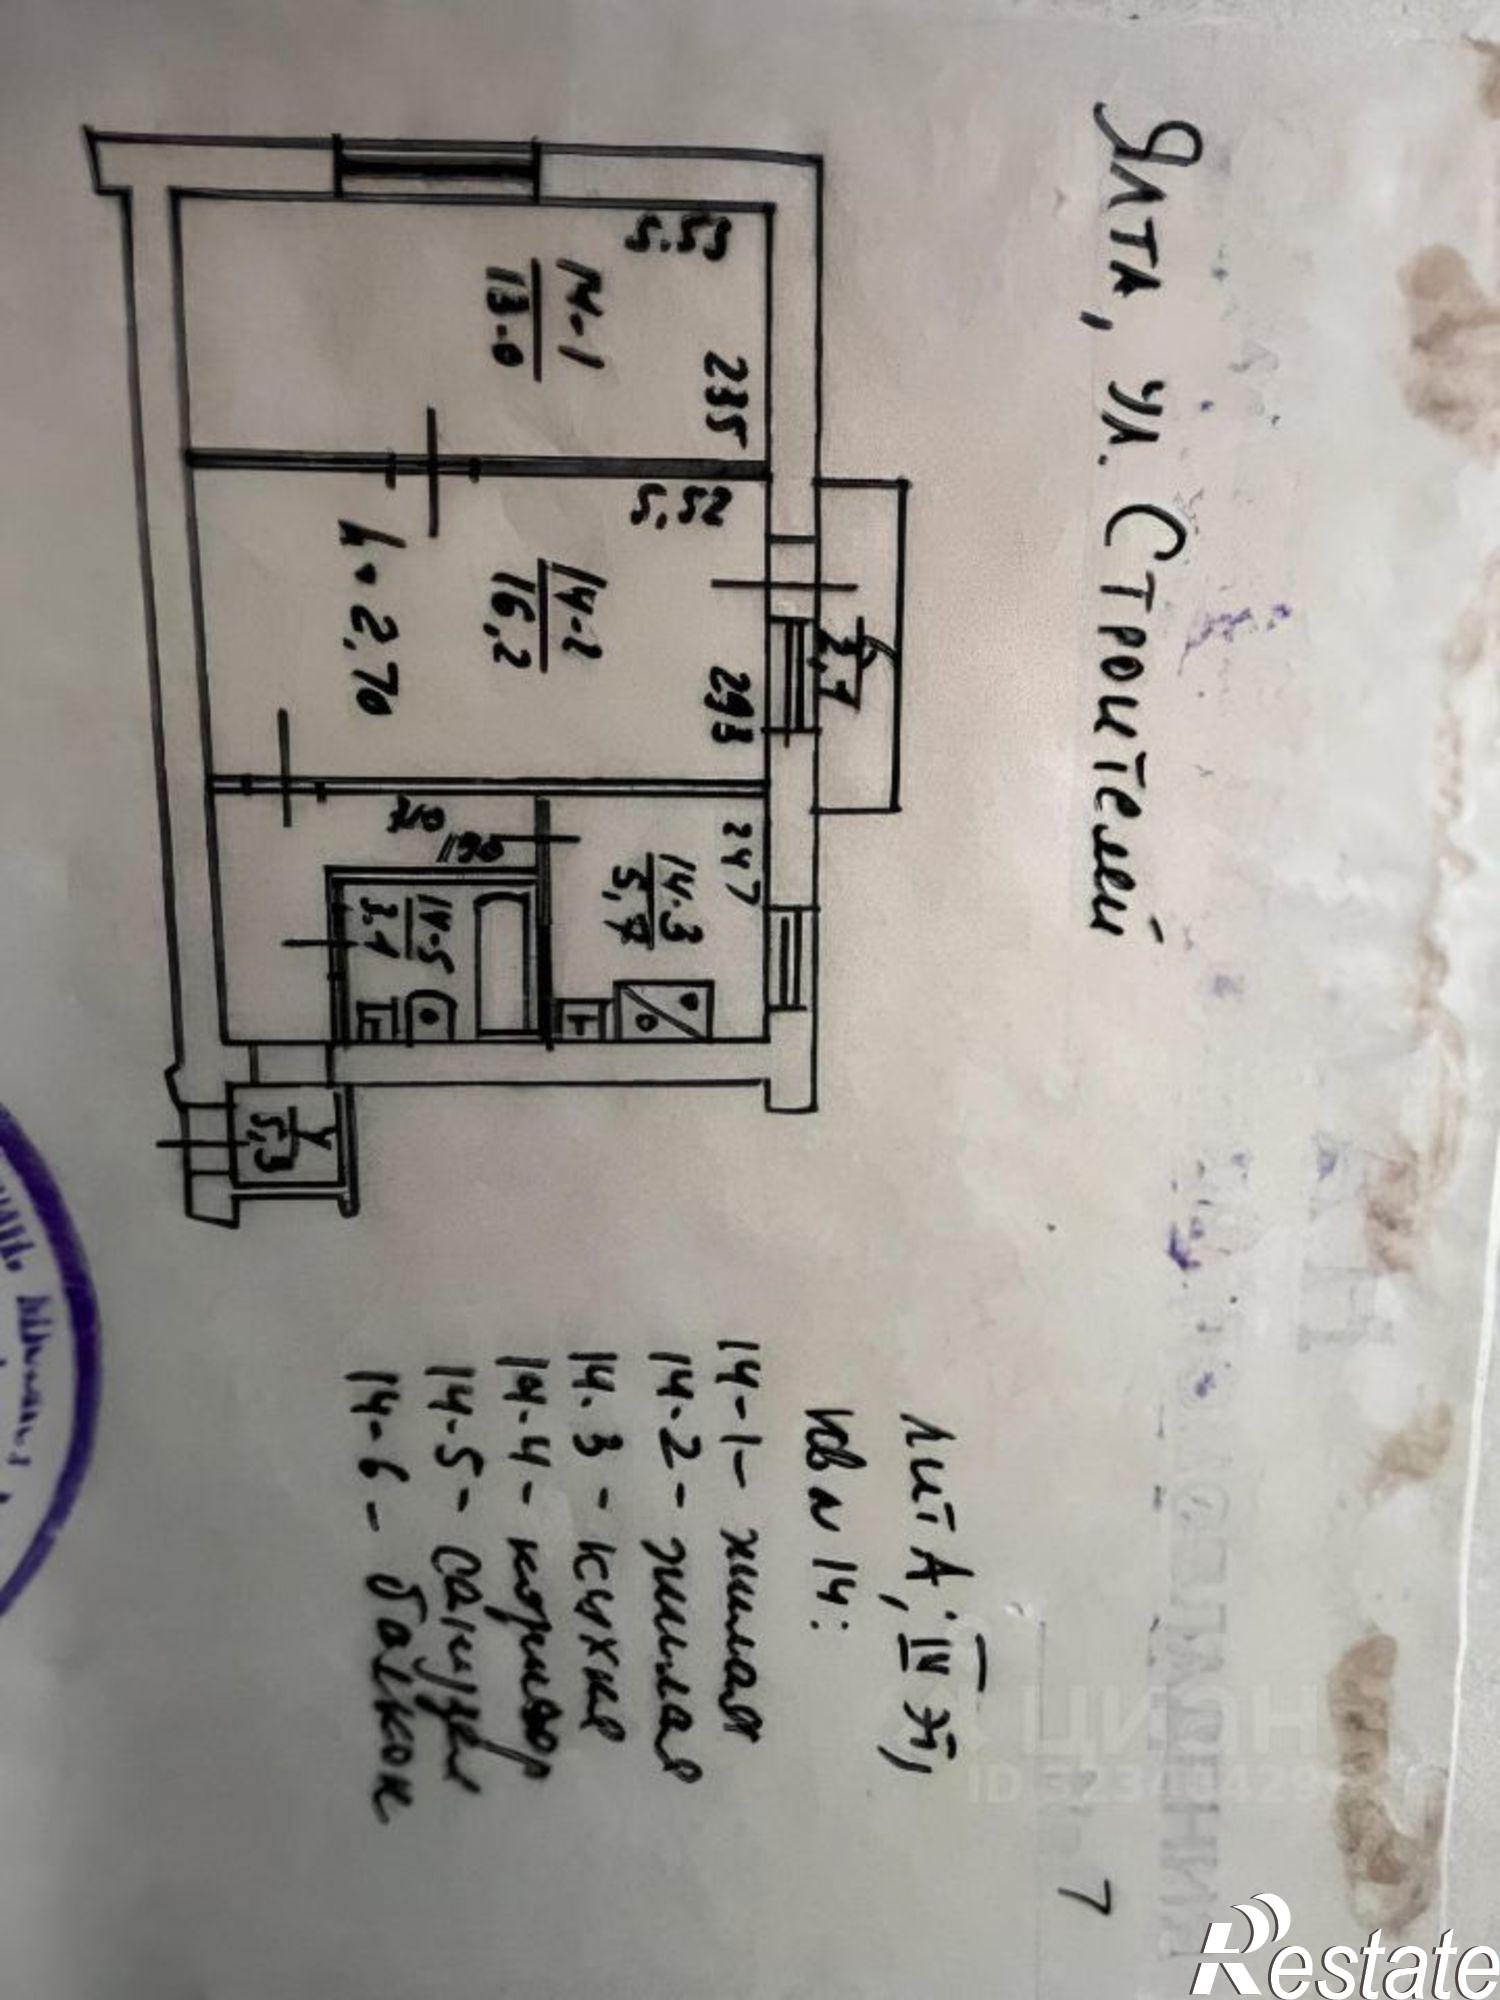 Ялта, ул. Строителей
7
2,7
5.53
235
14-1
13.0
5.52
293
14-2
16,2
h=2,70
247
14.3
5,7
14-5
3.1
5,3
лит А, IV эт,
кв N 14:
14-1- жилая
14.2- жилая
14.3 - кухня
14.4- коридор
14.5- санузел
14-6- балкон
ЦИАН
Restate